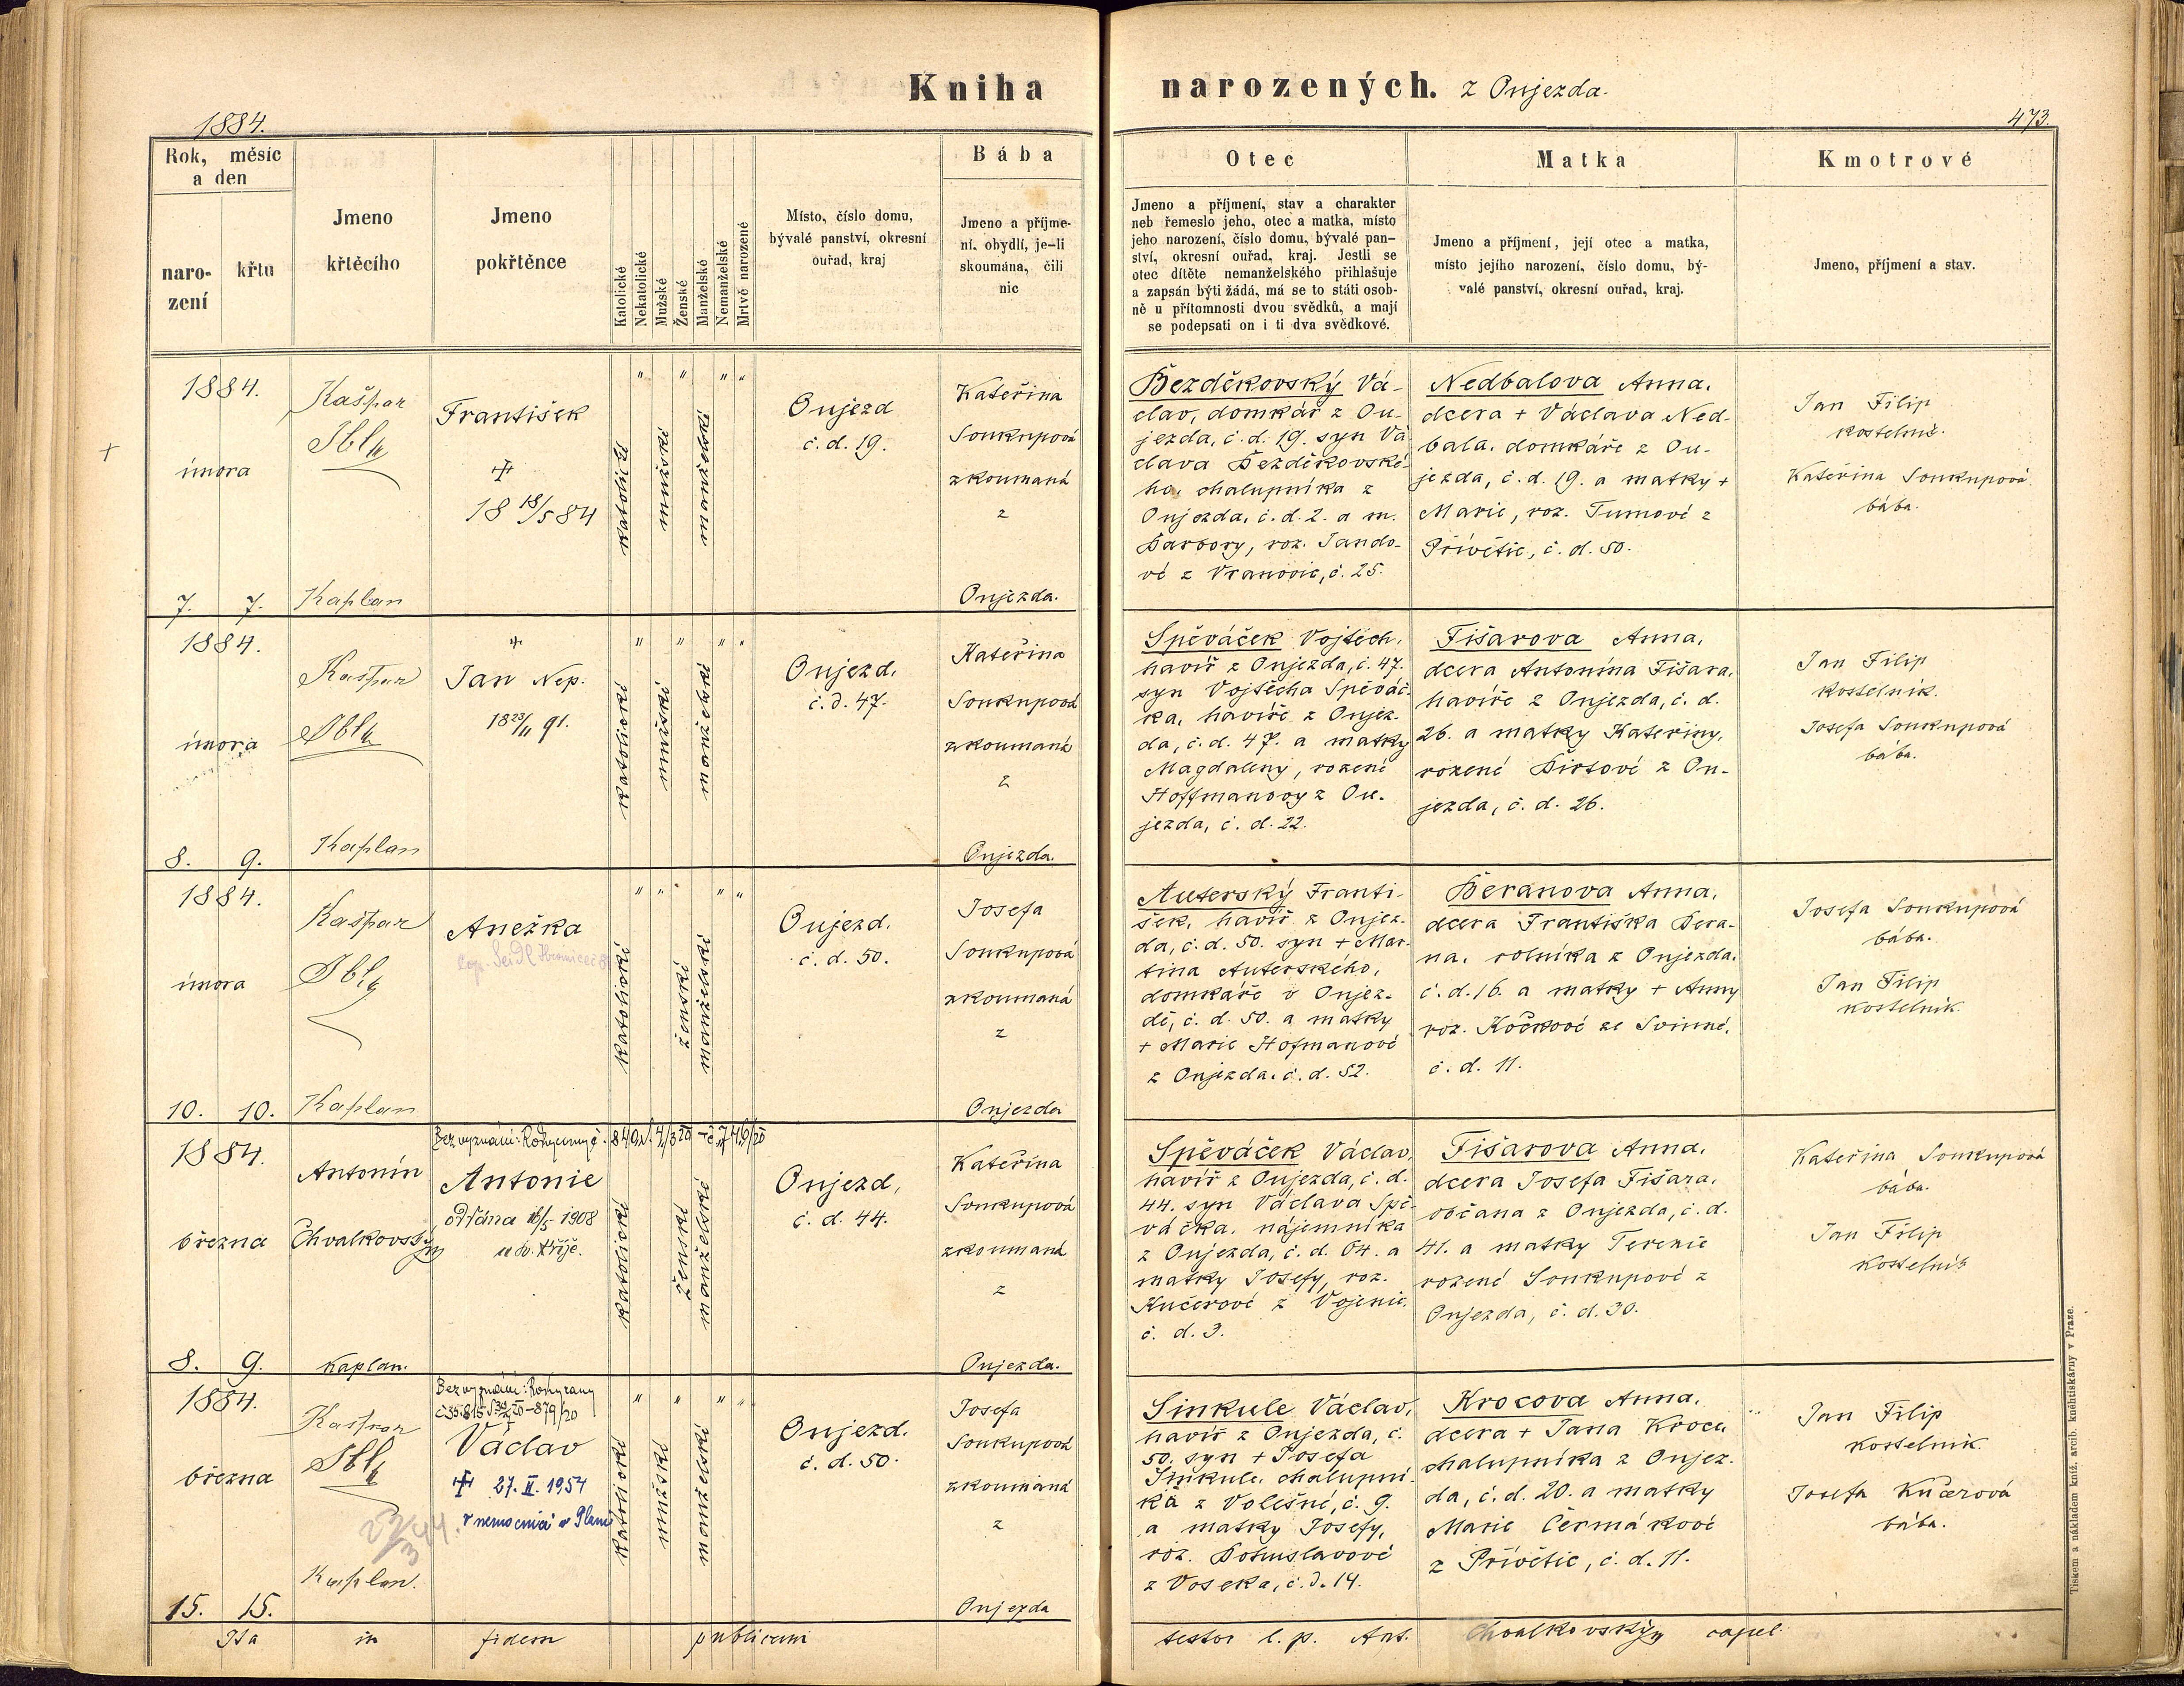 Kniha narozených. z Oujezda.
1884.
473.
Rok, měsíc
a den
naro-
zení
křtu
Jmeno
křtěcího
Jmeno
pokřtěnce
Katolické
Nekatolické
Mužské
Ženské
Manželské
Nemanželské
Mrtvě narozené
Místo, číslo domu,
bývalé panství, okresní
ouřad, kraj
Bába
Jmeno a příjme-
ní, obydlí, je-li
skoumána, čili
nic
Otec
Jmeno a příjmení, stav a charakter
neb řemeslo jeho, otec a matka, místo
jeho narození, číslo domu, bývalé pan-
ství, okresní ouřad, kraj. Jestli se
otec dítěte nemanželského přihlašuje
a zapsán býti žádá, má se to státi osob-
ně u přítomnosti dvou svědků, a mají
se podepsati on i ti dva svědkové.
Matka
Jmeno a příjmení, její otec a matka,
místo jejího narození, číslo domu, bý-
valé panství, okresní ouřad, kraj.
Kmotrové
Jmeno, příjmení a stav.
1884.
února
7. 7.
Kašpar
Kaplan
František
+
18 18/5 84
katolické
mužské
manželské
Oujezd
č. d. 19.
Kateřina
Soukupová
zkoumaná
z
Oujezda.
Bezděkovský Vá-
clav, domkář z Ou-
jezda, č. d. 19. syn Vá
clava Bezděkovské-
ho, chalupníka z
Oujezda, č. d. 2. a m.
Barbory, roz. Jando-
vé z Vranovic, č. 25.
Nedbalova Anna,
dcera + Václava Ned-
bala, domkáře z Ou-
jezda, č. d. 19. a matky +
Marie, roz. Tumové z
Přívětic, č. d. 50.
Jan Filip
kostelník.
Kateřina Soukupová
bába.
1884.
února
8. 9.
Kašpar
Kaplan
+
Jan Nep.
18 23/11 91.
katolické
mužské
manželské
Oujezd,
č. d. 47.
Kateřina
Soukupová
zkoumaná
z
Oujezda.
Spěváček Vojtěch,
havíř z Oujezda, č. 47.
syn Vojtěcha Spěváč-
ka, havíře z Oujez-
da, č. d. 47. a matky
Magdaleny, rozené
Hoffmanovy z Ou-
jezda, č. d. 22.
Fišarova Anna,
dcera Antonína Fišara,
havíře z Oujezda, č. d.
26. a matky Kateřiny,
rozené Birtové z Ou-
jezda, č. d. 26.
Jan Filip
kostelník.
Josefa Soukupová
bába.
1884.
února
10. 10.
Kašpar
Kaplan
Anežka
katolické
ženské
manželské
Oujezd.
č. d. 50.
Josefa
Soukupová
zkoumaná
z
Oujezda
Auterský Franti-
šek, havíř z Oujez-
da, č. d. 50. syn + Mar-
tina Auterského,
domkáře v Oujez-
dě, č. d. 50. a matky
+ Marie Hofmanové
z Oujezda, č. d. 52.
Beranova Anna,
dcera Františka Bera-
na, rolníka z Oujezda,
č. d. 16. a matky + Anny
roz. Kočkové ze Svinné,
č. d. 11.
Josefa Soukupová
bába.
Jan Filip
kostelník.
1884.
března
8. 9.
Antonín
Chvalkovský
kaplan.
Antonie
oddána 16/5 1908
u sv. Kříže.
katolické
ženské
manželské
Oujezd,
č. d. 44.
Kateřina
Soukupová
zkoumaná
z
Oujezda.
Spěváček Václav,
havíř z Oujezda, č. d.
44. syn Václava Spě-
váčka, nájemníka
z Oujezda, č. d. 64. a
matky Josefy, roz.
Kučerové z Vojenic,
č. d. 3.
Fišarova Anna,
dcera Josefa Fišara,
občana z Oujezda, č. d.
41. a matky Terezie
rozené Soukupové z
Oujezda, č. d. 30.
Kateřina Soukupová
bába.
Jan Filip
kostelník
1884.
března
15. 15.
Kašpar
Kaplan.
Bez vyznání: Rokycany
Václav
+ 27. II. 1954
v nemocnici v Plané
katolické
mužské
manželské
Oujezd.
č. d. 50.
Josefa
Soukupová
zkoumaná
z
Oujezda
Sinkule Václav,
havíř z Oujezda, č.
50. syn + Josefa
Sinkule, chalupní-
ka z Volešné, č. 9.
a matky Josefy,
roz. Bohuslavové
z Voseka, č. d. 14.
Krocova Anna,
dcera + Jana Kroca
chalupníka z Oujez-
da, č. d. 20. a matky
Marie Čermákové
z Přívětic, č. d. 11.
Jan Filip
kostelník.
Josefa Kučerová
bába.
Ita in fidem publicam testor l. p. Ant. Chvalkovský capel.
Tiskem a nákladem kníž. arcib. kněhtiskárny v Praze.